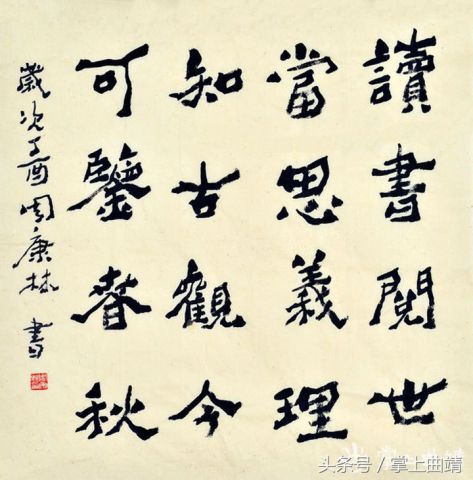 讀書閱世
當思義理
知古觀今
可鑒春秋
歲次丁酉周康林書
头条号 / 掌上曲靖